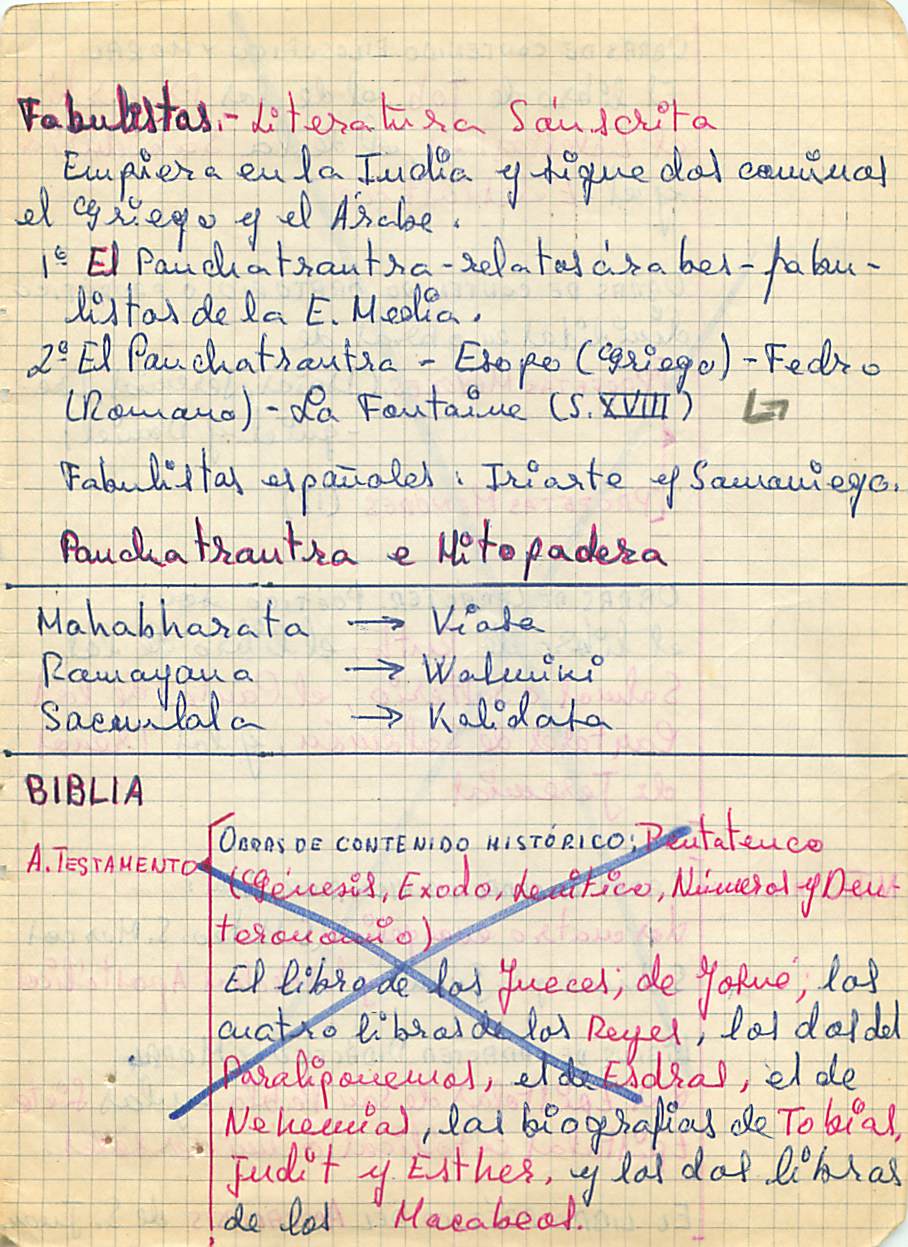 Fabulistas.- Literatura Sánscrita
Empieza en la India y sigue dos caminos
el Griego y el Árabe.
1º El Panchatrantra - relatos árabes - fabu-
listas de la E. Media.
2º El Panchatrantra - Esopo (Griego) - Fedro
(Romano) - La Fontaine (S. XVIII)
Fabulistas españoles: Iriarte y Samaniego.
Panchatrantra e Hitopadesa
Mahabharata → Viasa
Ramayana → Walmiki
Sacuntala → Kalidasa
BIBLIA
A. TESTAMENTO
OBRAS DE CONTENIDO HISTÓRICO: Pentateuco
(Génesis, Exodo, Levítico, Números y Deu-
teronomio)
El libro de los Jueces; de Josué; los
cuatro libros de los Reyes, los dos del
Paraliponemos, el de Esdras, el de
Nehemias, las biografías de Tobías,
Judit y Esther, y los dos libros
de los Macabeos.